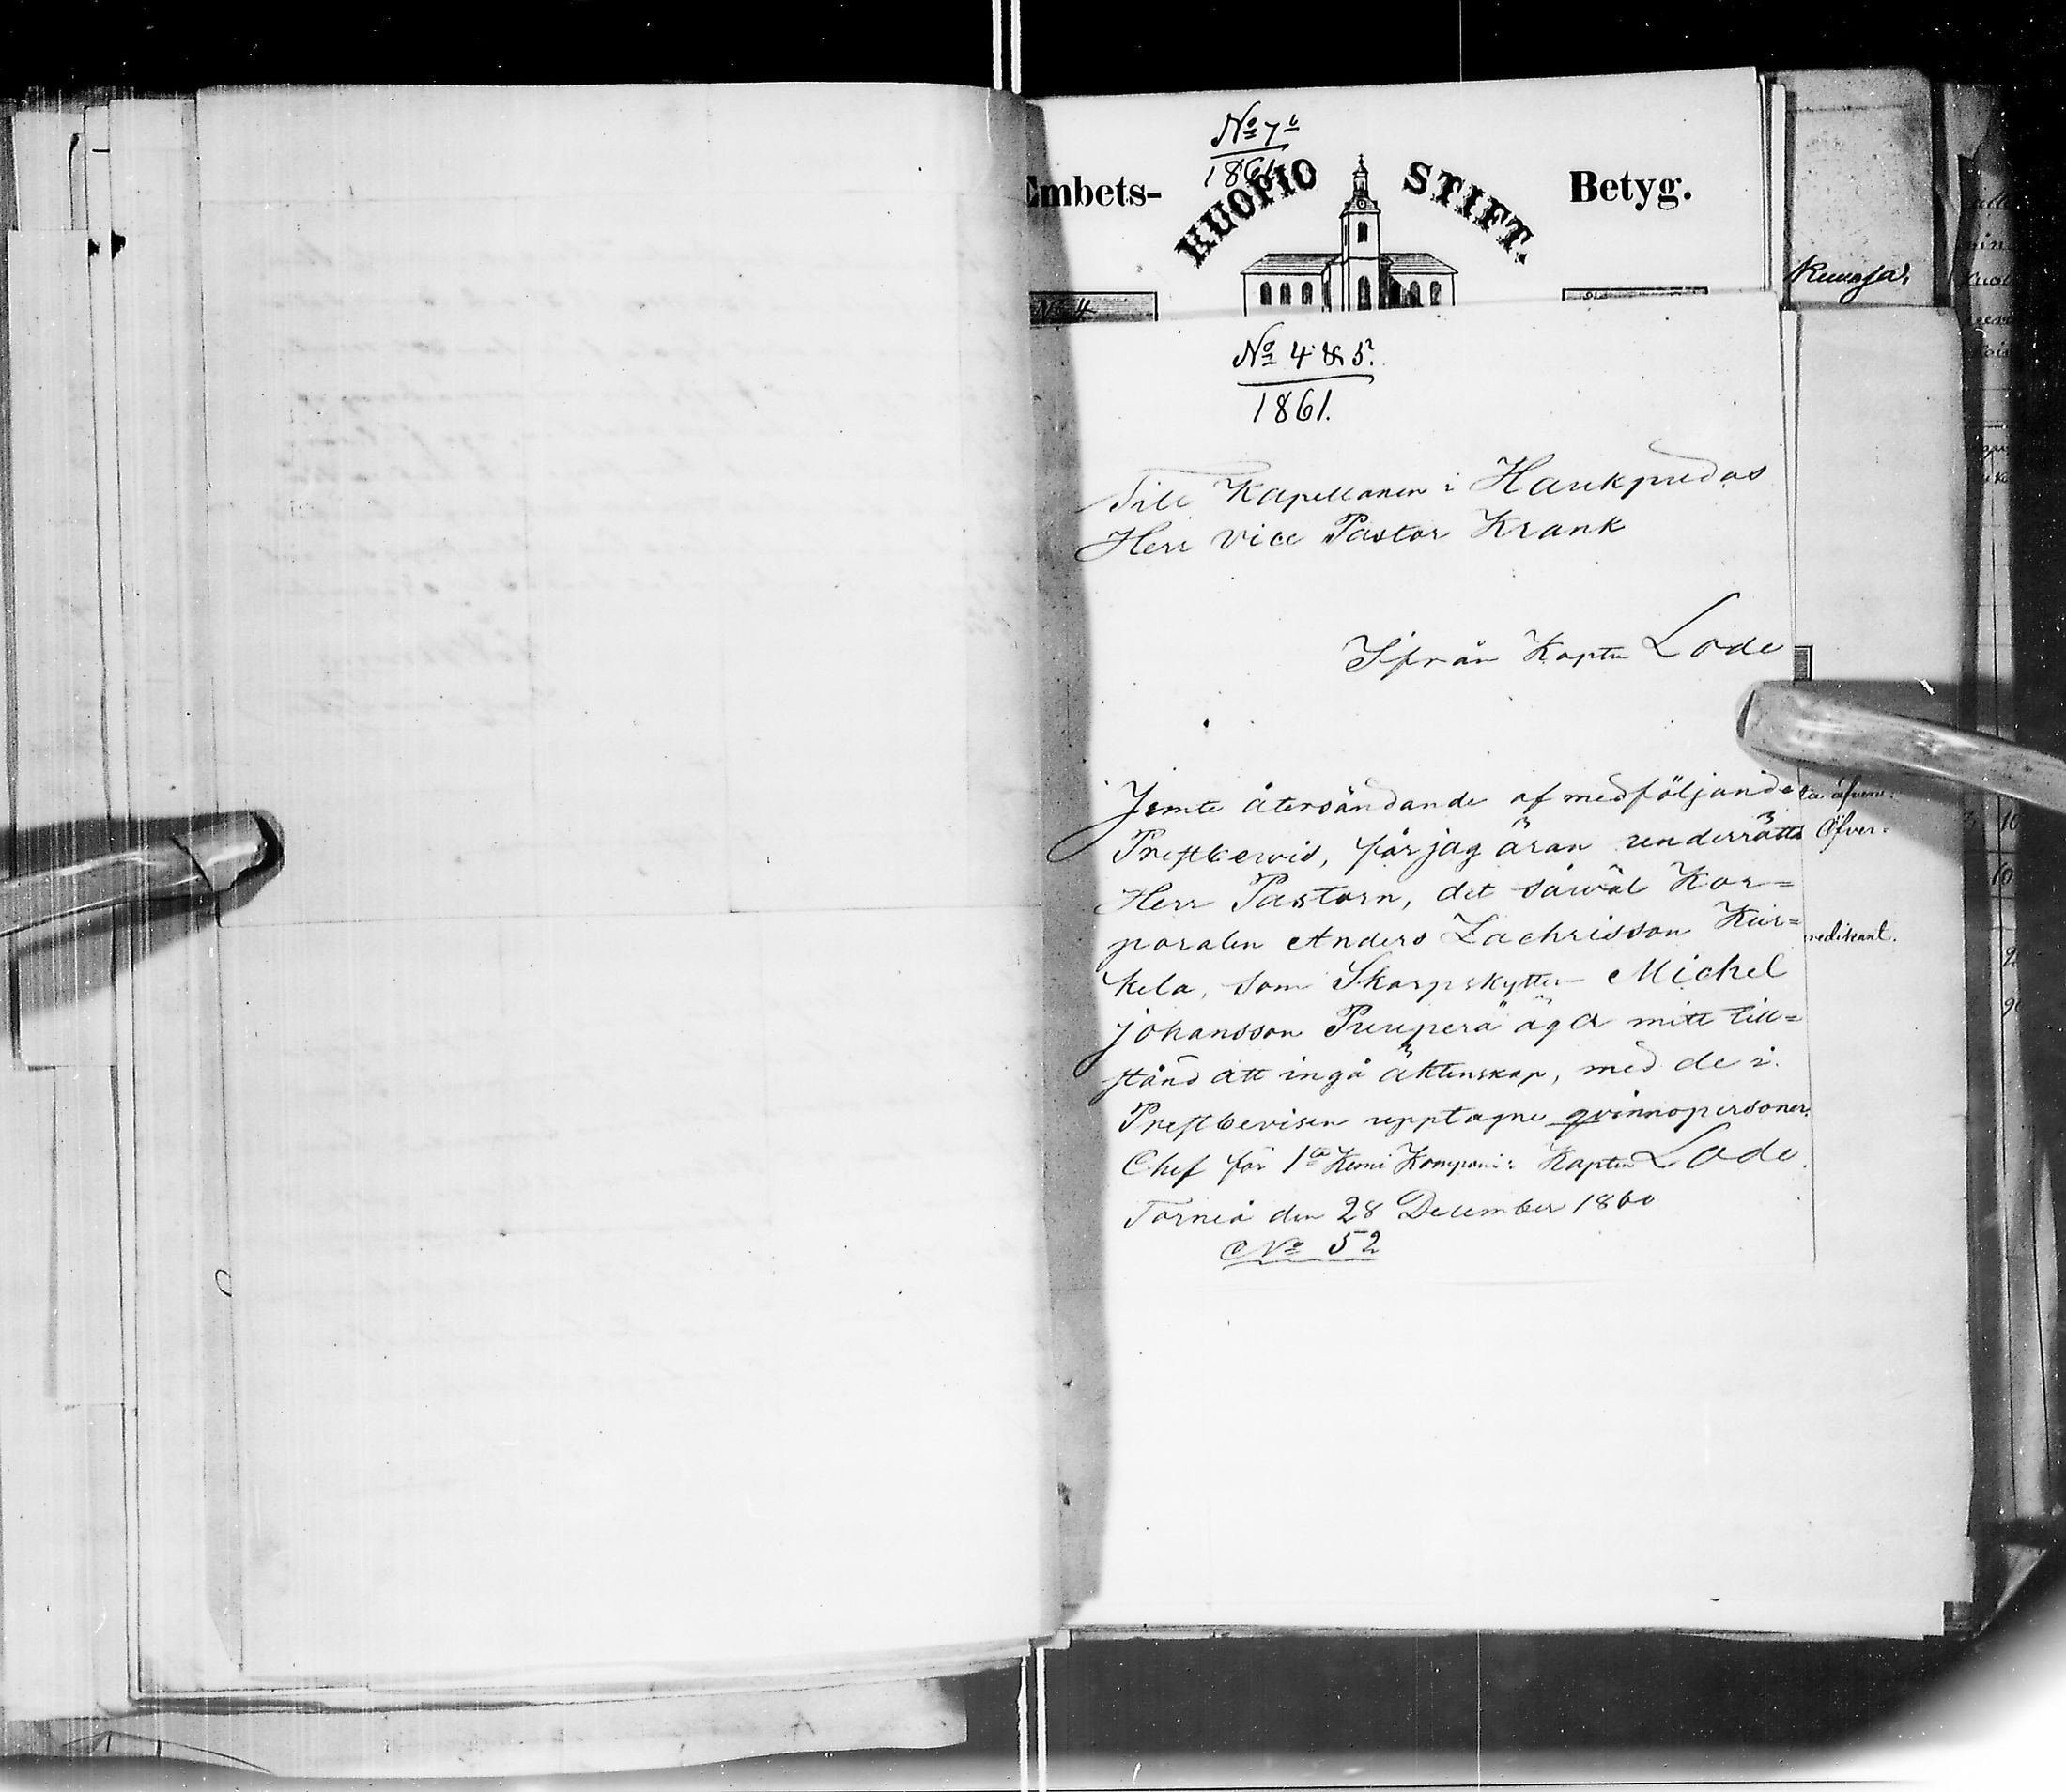 No 7b
1861
Embets- KUOPIO STIFT. Betyg.
No 4
No 4 & 5.
1861.
Till Kapellanen i Haukipudas
Herr Vice Pastor Krank
Ifrån Kapten Lode
Jemte återsändande af medföljande
Prestbewis, får jag äran underrätta
Herr Pastorn, det såwäl Kor=
poralen Anders Zachrisson Kur=
kela, som Skarpskytten Michel
Johansson Puuperä äga mitt till=
stånd att ingå äktenskap, med de i
Prestbevisen upptagne qvinnopersoner.
Chef för 1ta Kemi Kompani: Kapten Lode.
Torneå den 28 December 1860
No 52
Öfver-